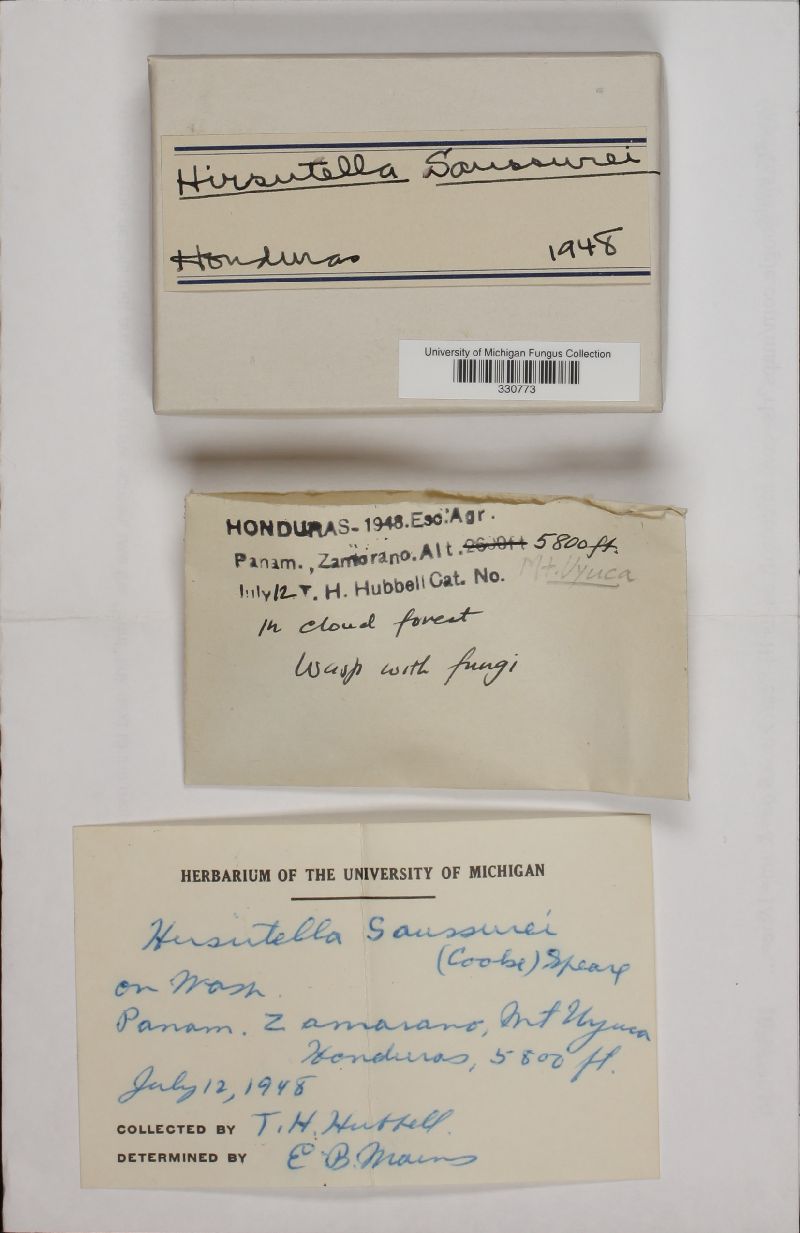 Hirsutella Saussurei
Honduras 1948
University of Michigan Fungus Collection
330773
HONDURAS-1948.Esc.Agr.
Panam., Zamorano. Alt. 5800 ft.
July 12 T. H. Hubbell Cat. No. Mt. Uyuca
In cloud forest
Wasp with fungi
HERBARIUM OF THE UNIVERSITY OF MICHIGAN
Hirsutella Saussurei
(Cooke) Speare
on Wasp.
Panam. Zamarano, Mt Uyuca
Honduras, 5800 ft.
July 12, 1948
COLLECTED BY T. H. Hubbell.
DETERMINED BY E B. Mains